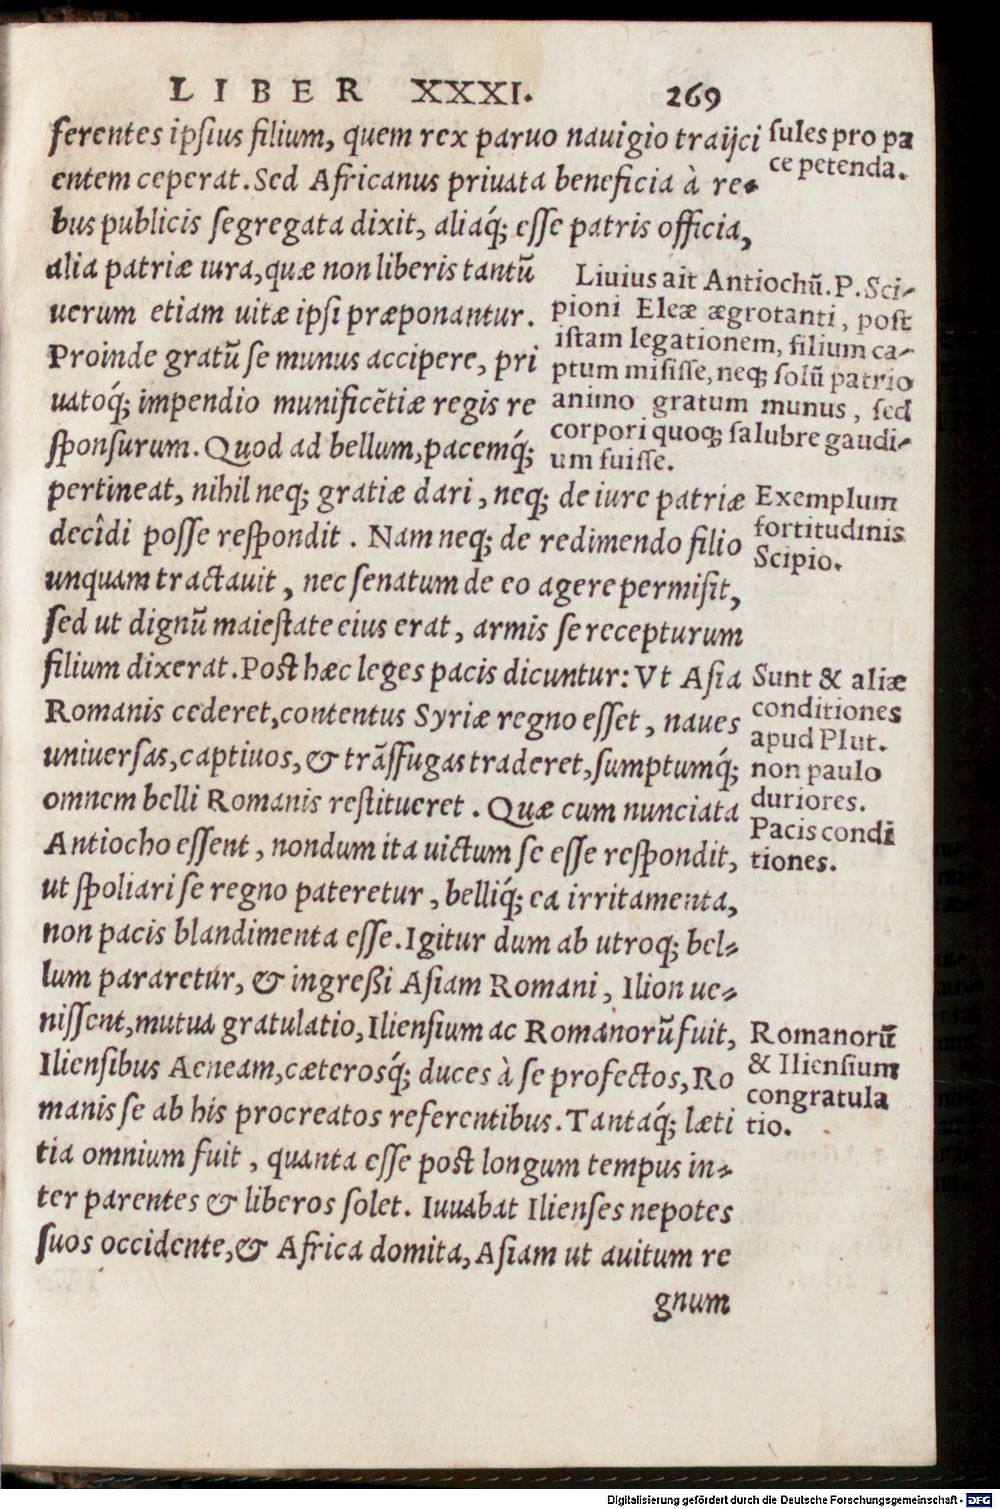 LIBER XXXI. 269
ferentes ipsius filium, quem rex paruo nauigio traijci
entem ceperat. Sed Africanus priuata beneficia à re-
bus publicis segregata dixit, aliaq́; esse patris officia,
alia patriæ iura, quæ non liberis tantũ
uerum etiam uitæ ipsi præponantur.
Proinde gratũ se munus accipere, pri
uatoq́; impendio munificẽtiæ regis re
sponsurum. Quod ad bellum, pacemq́;
pertineat, nihil neq; gratiæ dari, neq; de iure patriæ
decîdi posse respondit. Nam neq; de redimendo filio
unquam tractauit, nec senatum de eo agere permisit,
sed ut dignũ maiestate eius erat, armis se recepturum
filium dixerat. Post hæc leges pacis dicuntur: Vt Asia
Romanis cederet, contentus Syriæ regno esset, naues
uniuersas, captiuos, & trãsfugas traderet, sumptumq́;
omnem belli Romanis restitueret. Quæ cum nunciata
Antiocho essent, nondum ita uictum se esse respondit,
ut spoliari se regno pateretur, belliq́; ea irritamenta,
non pacis blandimenta esse. Igitur dum ab utroq; bel-
lum pararetur, & ingreßi Asiam Romani, Ilion ue-
nissent, mutua gratulatio, Iliensium ac Romanorũ fuit,
Iliensibus Aeneam, cæterosq́; duces à se profectos, Ro
manis se ab his procreatos referentibus. Tantaq́; læti
tia omnium fuit, quanta esse post longum tempus in-
ter parentes & liberos solet. Iuuabat Ilienses nepotes
suos occidente, & Africa domita, Asiam ut auitum re
gnum
sules pro pa
ce petenda.
Liuius ait Antiochũ. P. Sci-
pioni Eleæ ægrotanti, post
istam legationem, filium ca-
ptum misisse, neq; solũ patrio
animo gratum munus, sed
corpori quoq; salubre gaudi-
um fuisse.
Exemplum
fortitudinis
Scipio.
Sunt & aliæ
conditiones
apud Plut.
non paulo
duriores.
Pacis condi
tiones.
Romanorũ
& Iliensium
congratula
tio.
Digitalisierung gefördert durch die Deutsche Forschungsgemeinschaft - DFG